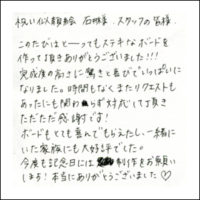 祝い似顔絵 石川様、スタッフの皆様
このたびはと——ってもステキなボードを
作って頂きありがとうございました!!!
完成度の高さに驚きと喜びでいっぱいに
なりました。時間もなくまたリクエストも
あったにも関わらず対応して頂き
ただただ感謝です!
ボードもとても喜んでもらえたし、一緒に
いた家族にも大好評でした。
今度も記念日には制作をお願い
します!本当にありがとうございました♡